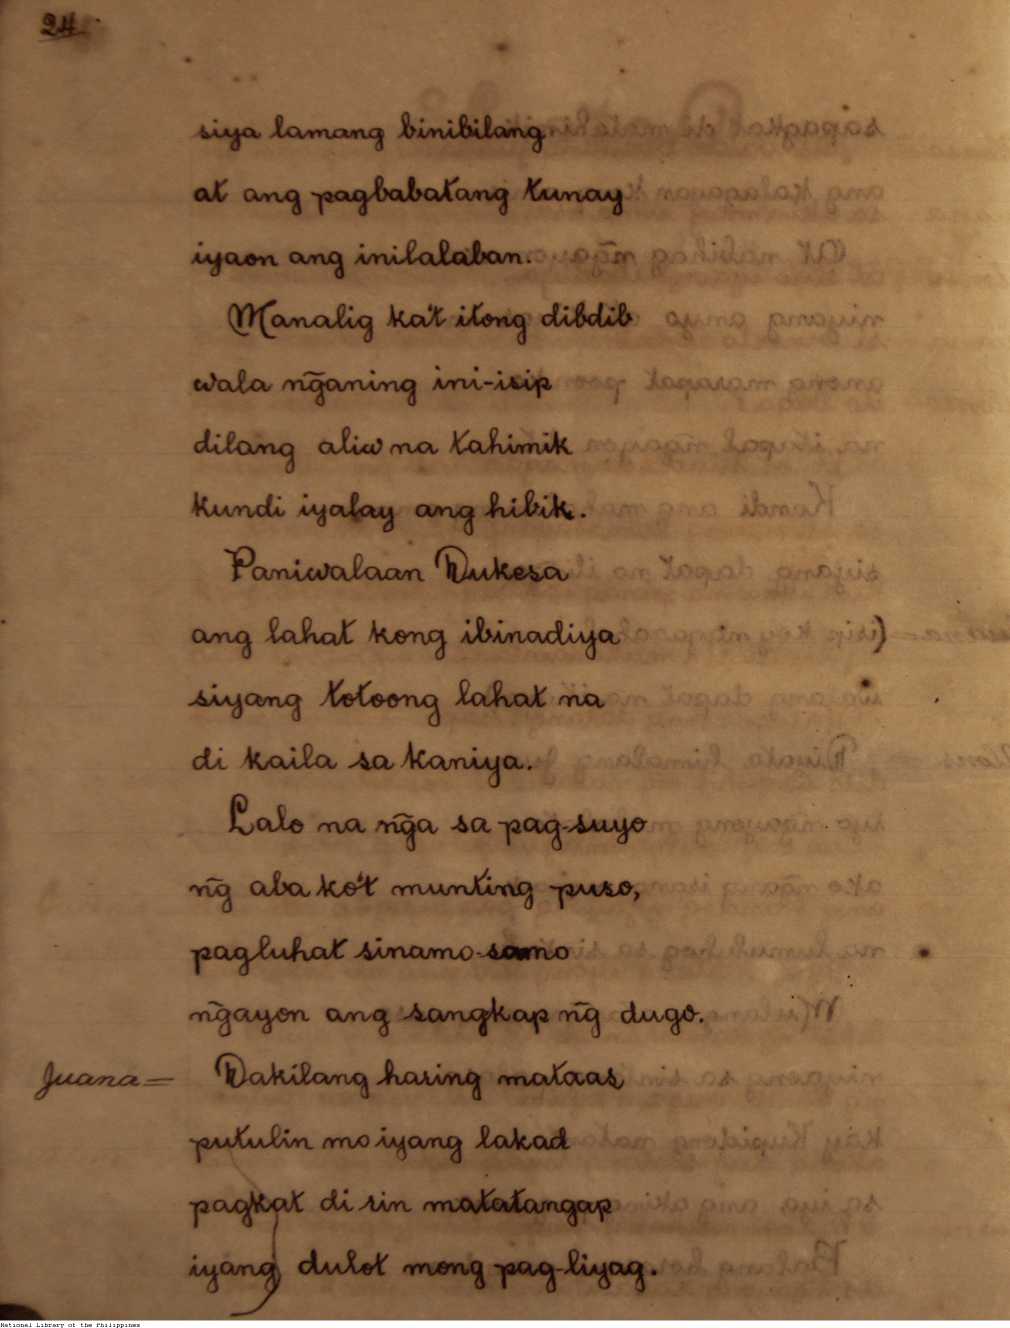 24
siya lamang binibilang
at ang pagbabatang tunay
iyaon ang inilalaban.
Manalig ka't itong dibdib
wala ñganing ini-isip
dilang aliw na tahimik
kundi iyalay ang hibik.
Paniwalaan Dukesa
ang lahat kong ibinadiya
siyang totoong lahat na
di kaila sa kaniya.
Lalo na ñga sa pag-suyo
ñg aba ko't munting puso,
pagluhat sinamo-samo
ñgayon ang sangkap ñg dugo.
Juana= Dakilang haring mataas
putulin mo iyang lakad
pagkat di rin matatangap
iyang dulot mong pag-liyag.
National Library of the Philippines